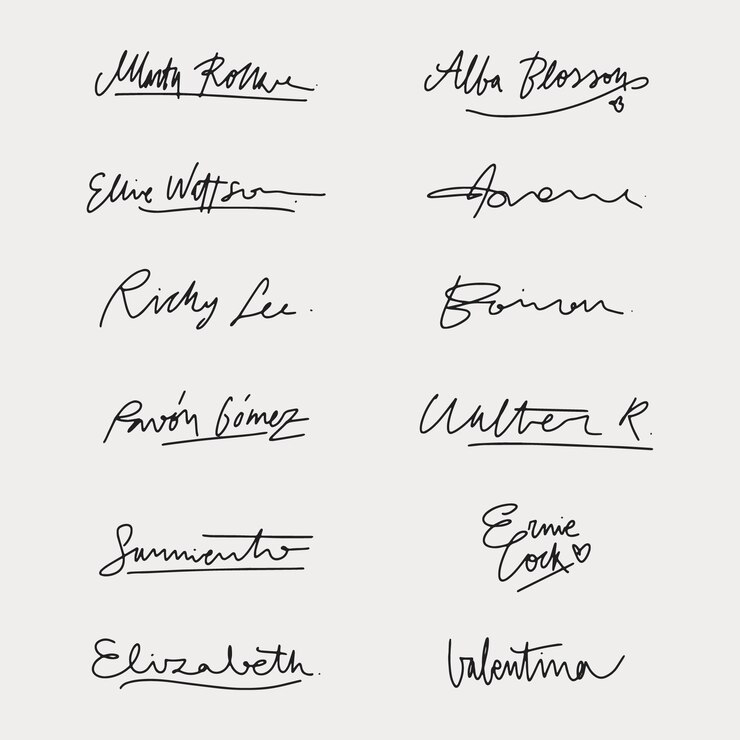 Marty
Alba Blossoms
Ellie Wattson.
Ricky Lee.
Pavón Gómez
Walter R.
Sarmiento
Ernie
Cock
Elizabeth.
Valentina